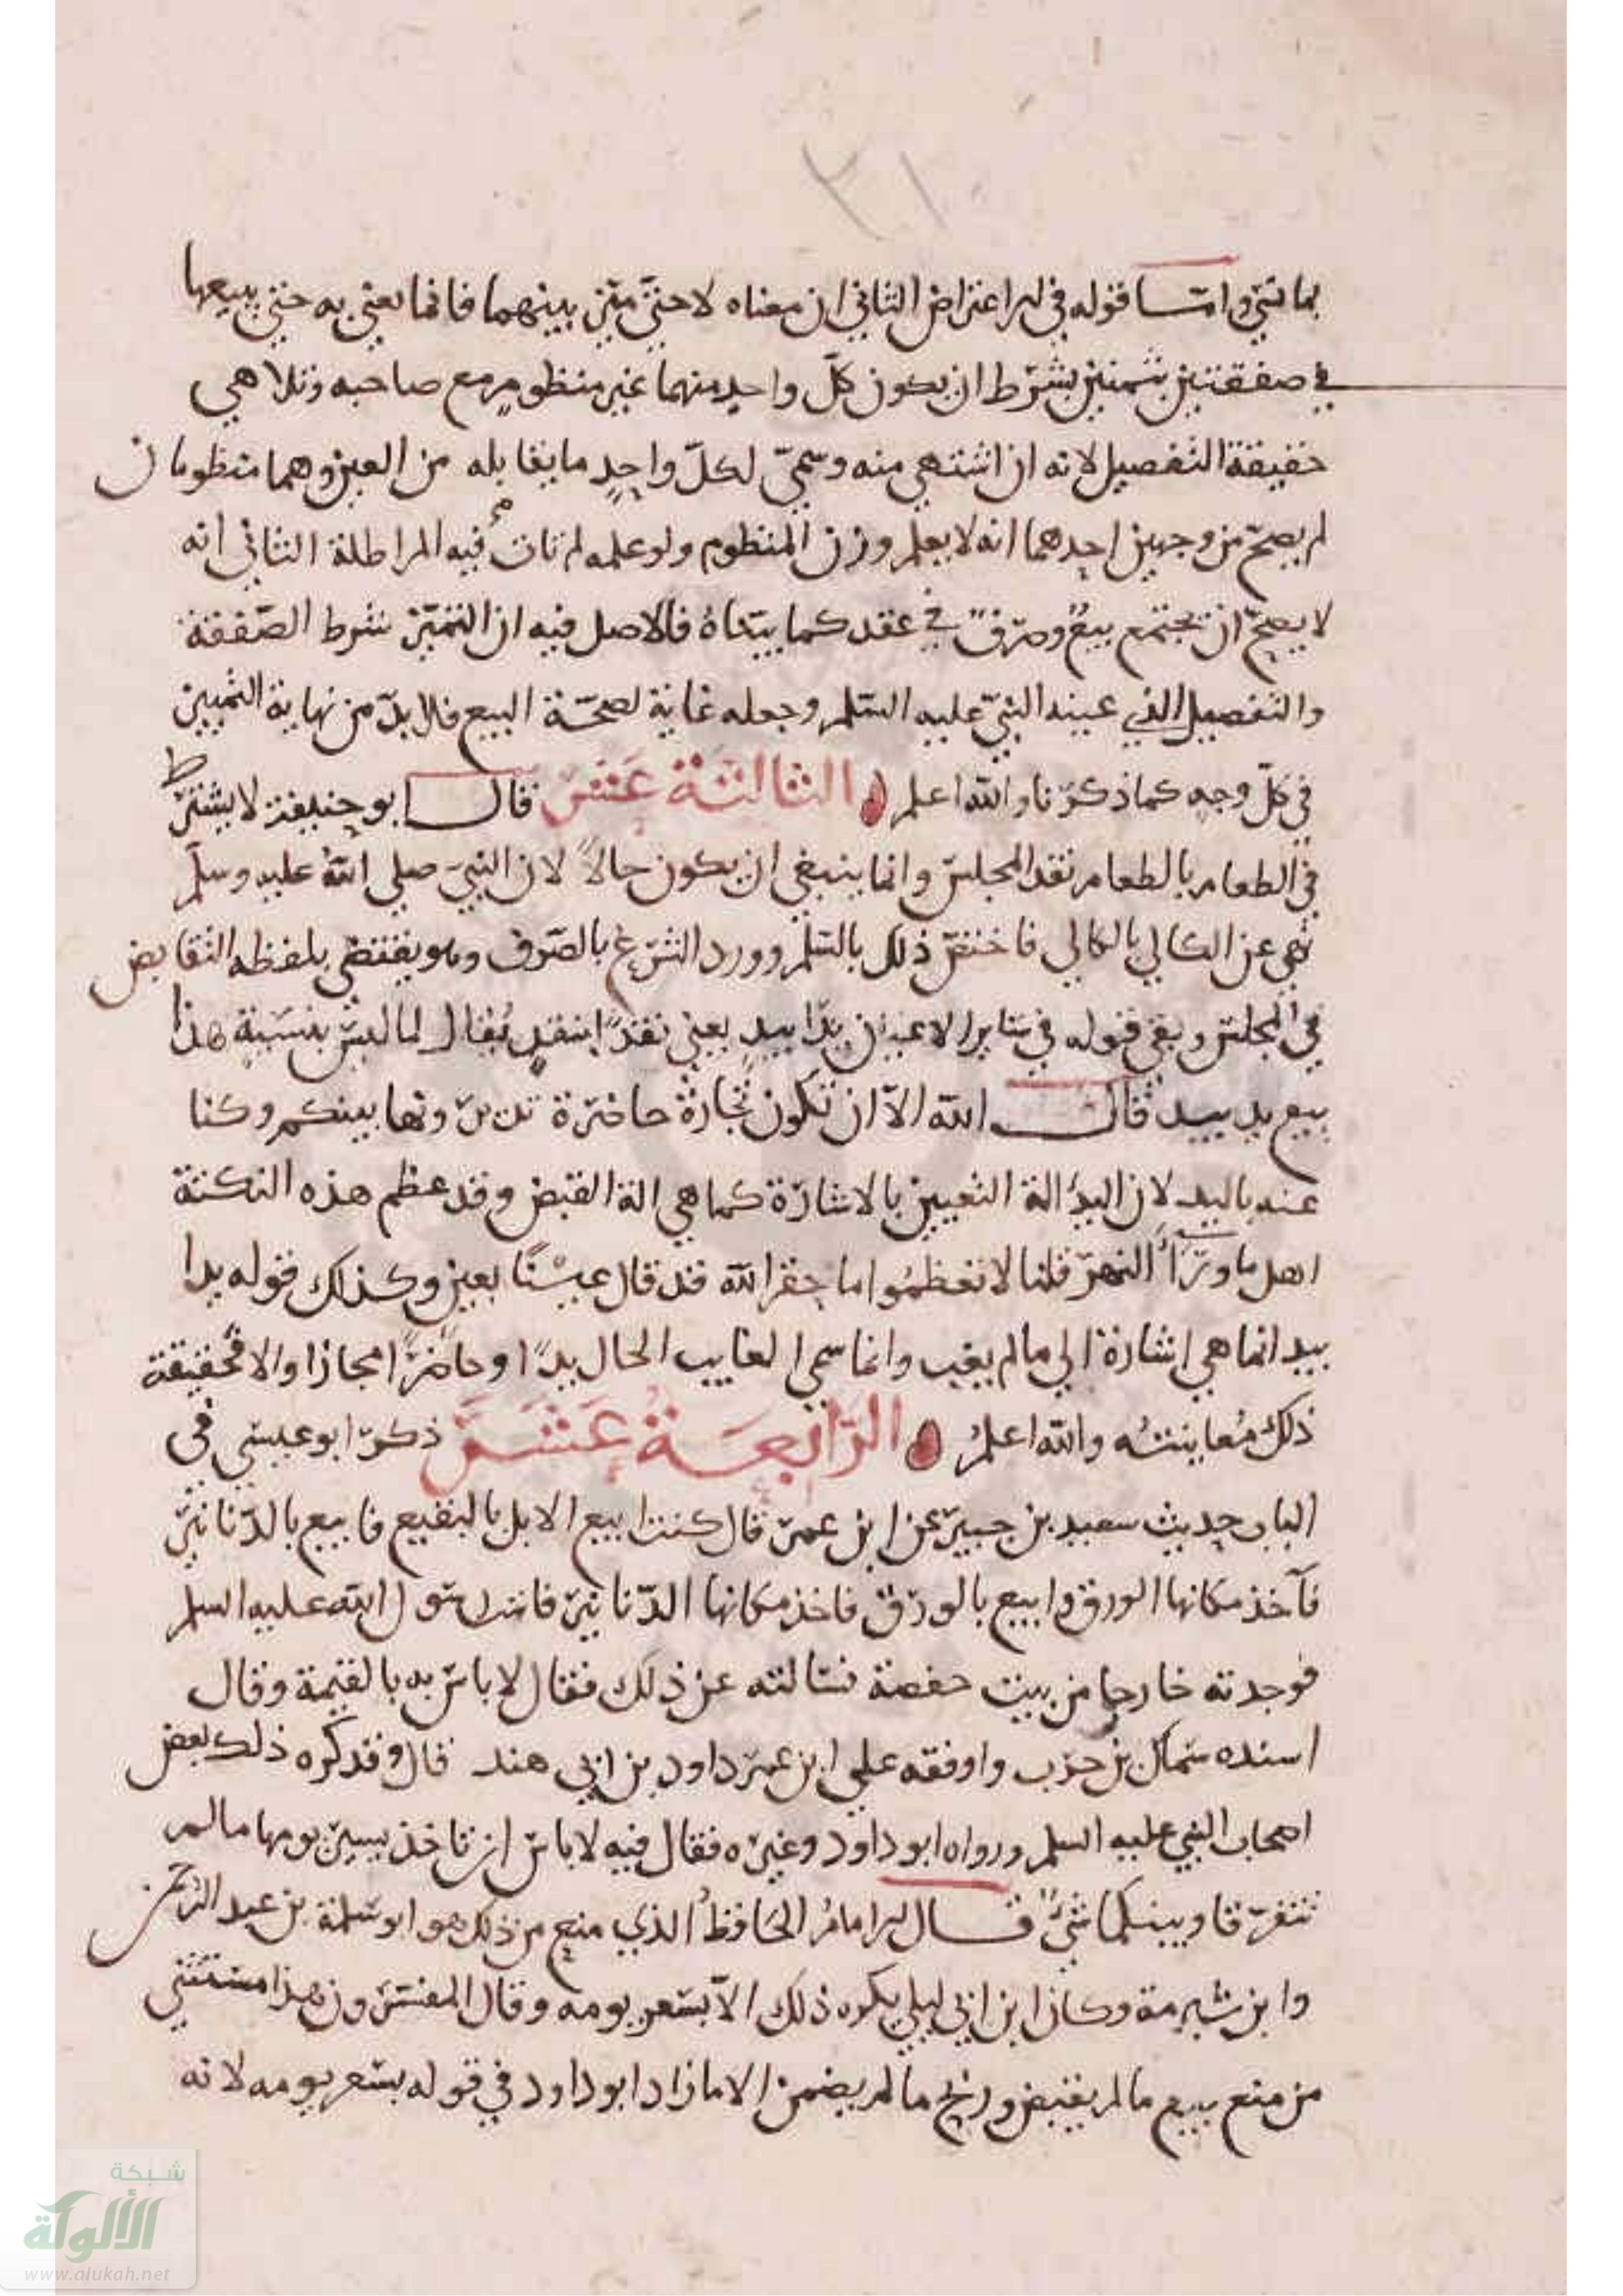 ٣١
بماتتي وامــا قوله في الاعتراض الثاني ان معناه لا حتي تميز بينهما فانما يعني به حتي يبيعها
في صفقتين بثمنين بشرط ان يكون كل واحد منهما غير منظوم مع صاحبه وتلا هي
حقيقة التفصيل لانه ان اشتهي منه وسمي لكل واحد ما يقابله من العين وهما منظومان
لم يصح من وجهين احدهما انه لا يعلم وزن المنظوم ولو علمه لم تات فيه المراطلة الثاني انه
لا يصح ان يجتمع بيع وصرف في عقد كما بيناه فالاصل فيه ان التميز شرط الصفقة
والتفصيل الذي عينه النبي عليه السلم وجعله غاية لصحة البيع فلا بد من نهاية التمييز
في كل وجه كما ذكرنا والله اعلم الثالثة عشر قال ابو حنيفة لا يشترط
في الطعام بالطعام نقد المجلس وانما ينبغي ان يكون حالا لان النبي صلي الله عليه وسلم
نهي عن الكالي بالكالي فاختص ذلك بالسلم وورد الشرع بالصرف وهو يقتضي بلفظه التقابض
في المجلس وبقي قوله في ساير الاعيان يدا بيد يعني نقدا بنقد يقال لما ليس بنسية هذا
بيع يد بيد قال الله الا ان تكون تجارة حاضرة تديرونها بينكم وكنا
عنه باليد لان اليد الة التعيين بالاشارة كما هي الة القبض وقد عظم هذه النكتة
اهل ما وراء النهر قلنا لا تعظموا ما حقر الله قد قال عينا بعين وكذلك قوله يدا
بيد انما هي اشارة الي ما لم يغب وانما سمي الغايب الحال يدا وحاضرا مجازا والا فحقيقة
ذلك معاينته والله اعلم الرابعة عشر ذكر ابو عيسي في
الباب حديث سعيد بن جبير عن ابن عمر قال كنت ابيع الابل بالبقيع فابيع بالدنانير
فآخذ مكانها الورق وابيع بالورق فاخذ مكانها الدنانير فاتيت رسول الله عليه السلم
فوجدته خارجا من بيت حفصة فسالته عن ذلك فقال لا باس به بالقيمة وقال
اسنده سماك بن حرب واوفقه علي ابن عمر داود بن ابي هند قال وقد كره ذلك بعض
اصحاب النبي عليه السلم ورواه ابو داود وغيره فقال فيه لا باس ان تاخذ بسعر يومها ما لم
تتفرقا وبينكما شي قــال الامام الحافظ الذي منع من ذلك هو ابو سلمة بن عبد الرحمن
وابن شبرمة وكان ابن ابي ليلي يكره ذلك الا بسعر يومه وقال المفسرون هذا مستثني
من منع بيع ما لم يقبض وربح ما لم يضمن الا ما زاد ابو داود في قوله بسعر يومه لانه
شبكة
الألوكة
www.alukah.net